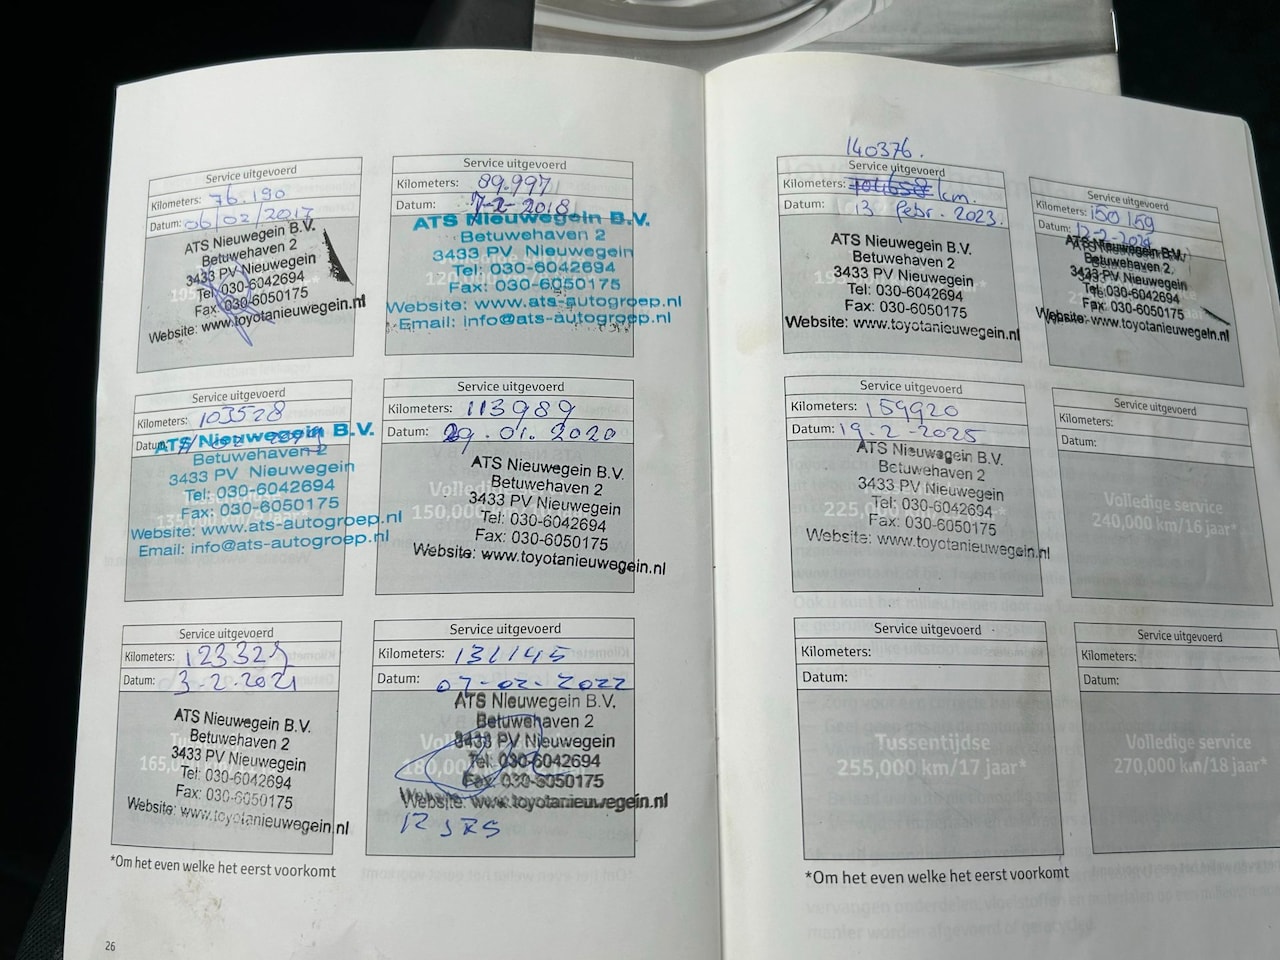 Service uitgevoerd
Kilometers: 76.190
Datum: 06/02/2017
ATS Nieuwegein B.V.
Betuwehaven 2
3433 PV Nieuwegein
Tel: 030-6042694
Fax: 030-6050175
Website: www.toyotanieuwegein.nl
Service uitgevoerd
Kilometers: 89.997
Datum: 7-2-2018
ATS Nieuwegein B.V.
Betuwehaven 2
3433 PV Nieuwegein
Tel: 030-6042694
Fax: 030-6050175
Website: www.ats-autogroep.nl
Email: info@ats-autogroep.nl
Service uitgevoerd
Kilometers: 103528
Datum:
ATS Nieuwegein B.V.
Betuwehaven 2
3433 PV Nieuwegein
Tel: 030-6042694
Fax: 030-6050175
Website: www.ats-autogroep.nl
Email: info@ats-autogroep.nl
Service uitgevoerd
Kilometers: 113989
Datum: 29.01.2020
ATS Nieuwegein B.V.
Betuwehaven 2
3433 PV Nieuwegein
Tel: 030-6042694
Fax: 030-6050175
Website: www.toyotanieuwegein.nl
150,000
Service uitgevoerd
Kilometers: 123329
Datum: 3-2-2021
ATS Nieuwegein B.V.
Betuwehaven 2
3433 PV Nieuwegein
Tel: 030-6042694
Fax: 030-6050175
Website: www.toyotanieuwegein.nl
Service uitgevoerd
Kilometers: 131145
Datum: 07-02-2022
ATS Nieuwegein B.V.
Betuwehaven 2
3433 PV Nieuwegein
Tel: 030-6042694
Fax: 030-6050175
Website: www.toyotanieuwegein.nl
12 JRS
*Om het even welke het eerst voorkomt
26
140376.
Service uitgevoerd
Kilometers: km.
Datum: 13 Febr. 2023.
ATS Nieuwegein B.V.
Betuwehaven 2
3433 PV Nieuwegein
Tel: 030-6042694
Fax: 030-6050175
Website: www.toyotanieuwegein.nl
Service uitgevoerd
Kilometers: 150159
Datum: 12-2-2024
ATS Nieuwegein B.V.
Betuwehaven 2
3433 PV Nieuwegein
Tel: 030-6042694
Fax: 030-6050175
Website: www.toyotanieuwegein.nl
Service uitgevoerd
Kilometers: 159920
Datum: 19-2-2025
ATS Nieuwegein B.V.
Betuwehaven 2
3433 PV Nieuwegein
Tel: 030-6042694
Fax: 030-6050175
Website: www.toyotanieuwegein.nl
Service uitgevoerd
Kilometers:
Datum:
Volledige service
240,000 km/16 jaar*
Service uitgevoerd
Kilometers:
Datum:
Tussentijdse
255,000 km/17 jaar*
Service uitgevoerd
Kilometers:
Datum:
Volledige service
270,000 km/18 jaar*
*Om het even welke het eerst voorkomt